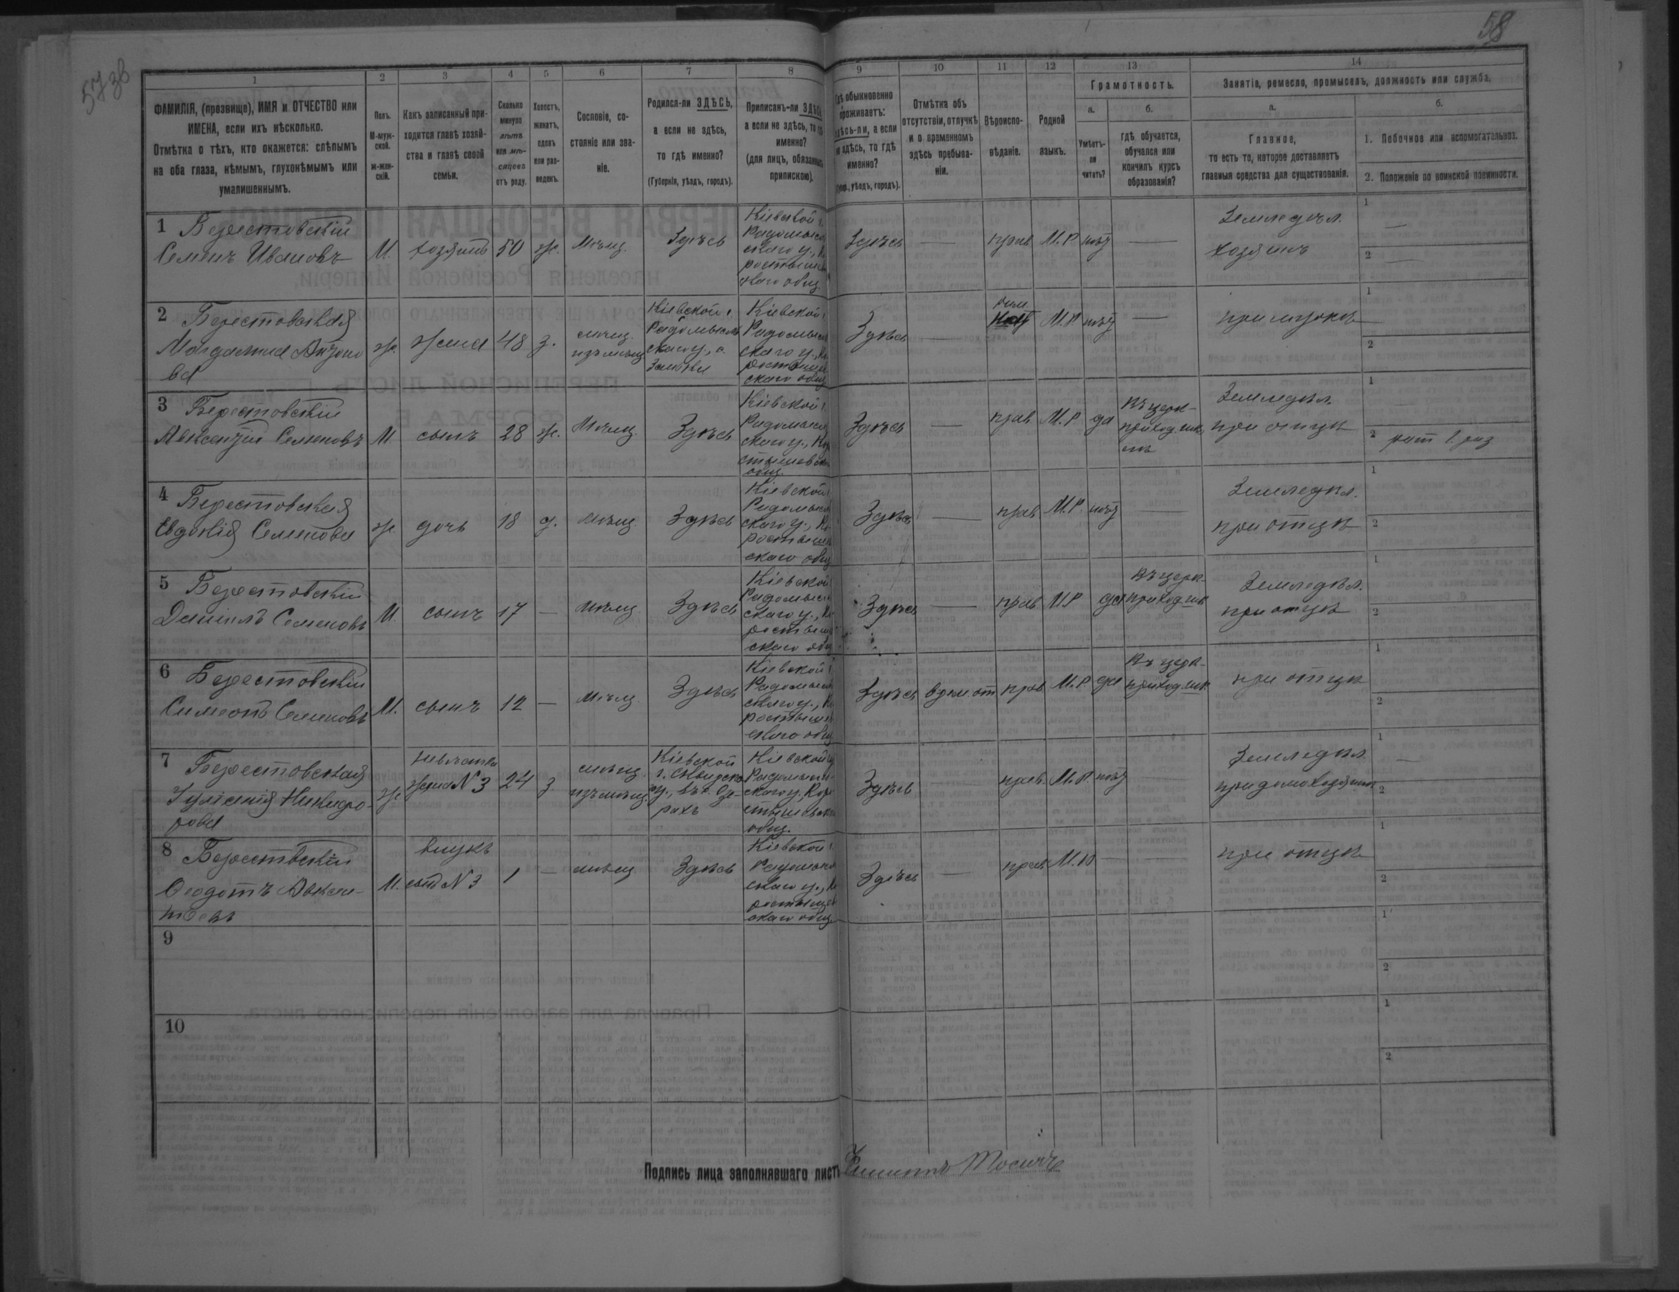 58
1
2
3
4
5
6
7
8
9
10
11
12
13
14
ФАМИЛІЯ, (прозвище), ИМЯ и ОТЧЕСТВО или
ИМЕНА, если ихъ нѣсколько.
Отмѣтка о тѣхъ, кто окажется: слѣпымъ
на оба глаза, нѣмымъ, глухонѣмымъ или
умалишеннымъ.
Полъ.
М-муж-
ской.
ж-жен-
скій.
Какъ записанный при-
ходится главѣ хозяй-
ства и главѣ своей
семьи.
Сколько
минуло
лѣтъ
или мѣ-
сяцевъ
отъ роду.
Холостъ,
женатъ,
вдовъ
или раз-
веденъ.
Сословіе, со-
стояніе или зва-
ніе.
Родился-ли ЗДѢСЬ,
а если не здѣсь,
то гдѣ именно?
(Губернія, уѣздъ, городъ).
Приписанъ-ли ЗДѢСЬ,
а если не здѣсь, то гдѣ
именно?
(для лицъ, обязанныхъ
припискою).
Гдѣ обыкновенно
проживаетъ:
здѣсь-ли, а если
не здѣсь, то гдѣ
именно?
(Губ., уѣздъ, городъ).
Отмѣтка объ
отсутствіи, отлучкѣ
и о временномъ
здѣсь пребыва-
ніи.
Вѣроиспо-
вѣданіе.
Родной
языкъ.
Грамотность.
а.
Умѣетъ-
ли
читать?
б.
гдѣ обучается,
обучался или
кончилъ курсъ
образованія?
Занятія, ремесла, промыселъ, должность или служба.
а.
Главное,
то есть то, которое доставляетъ
главныя средства для существованія.
б.
1. Побочное или вспомогательное.
2. Положеніе по воинской повинности.
1 Берестовскій
Семенъ Ивановъ
М
хозяинъ
50
ж.
мѣщ.
Здѣсь
Кіевской г.
Радомысль
скаго у., Ко
ростышев
скаго общ
Здѣсь
—
прав
М.Р
нѣт
—
Земледѣл.
хозяинъ
2 Берестовская
ж.
жена
48
з.
мѣщ.
Кіевской г.
Радомысль
скаго у., с.
Кіевской г.
Радомысль
скаго у., Ко
ростышев
скаго общ
Здѣсь
—
М.Р
нѣт
—
при мужѣ
3 Берестовскій
Авксентій Семеновъ
М
сынъ
28
ж.
Мѣщ.
Здѣсь
Кіевской г.
Радомысль
скаго у., Коро
стышевска
общ
Здѣсь
—
прав
М.Р
да
Въ церк-
приходск.
Земледѣл.
при отцѣ
4 Берестовская
Евдокія Семенова
ж.
дочь
18
д.
мѣщ
Здѣсь
Кіевской г.
Радомысль
скаго у., Ко
ростышев
скаго общ
Здѣсь
—
прав
М.Р
нѣт
—
Земледѣл.
при отцѣ
5 Берестовскій
Даніилъ Семеновъ
М.
сынъ
17
—
мѣщ
Здѣсь
Кіевской г.
Радомысль
скаго у., Ко
ростышев
скаго общ
Здѣсь
—
прав
М.Р
да
Въ церк-
приходск
Земледѣл.
при отцѣ
6 Берестовскій
Симеонъ Семеновъ
М.
сынъ
12
—
мѣщ
Здѣсь
Кіевской г.
Радомысль
скаго у., Ко
ростышев
скаго общ
Здѣсь
прав
М.Р
да
Въ церк-
приходск
при отцѣ
7 Берестовская
ж
невѣстка
жена №3
24
з
мѣщ
Кіевской
Кіевской г.
Радомысль
скаго у., Коро
стышевска
общ.
Здѣсь
прав
М.Р
нѣт
Земледѣл.
8 Берестовскій
Ѳеодотъ Авксен-
тіевъ
М.
внукъ
сынъ №3
1
—
мѣщ
Здѣсь
Кіевской г.
Радомысль
скаго у., Ко
ростышев
скаго общ
Здѣсь
—
прав
—
—
при отцѣ
9
10
Подпись лица заполнявшаго листъ